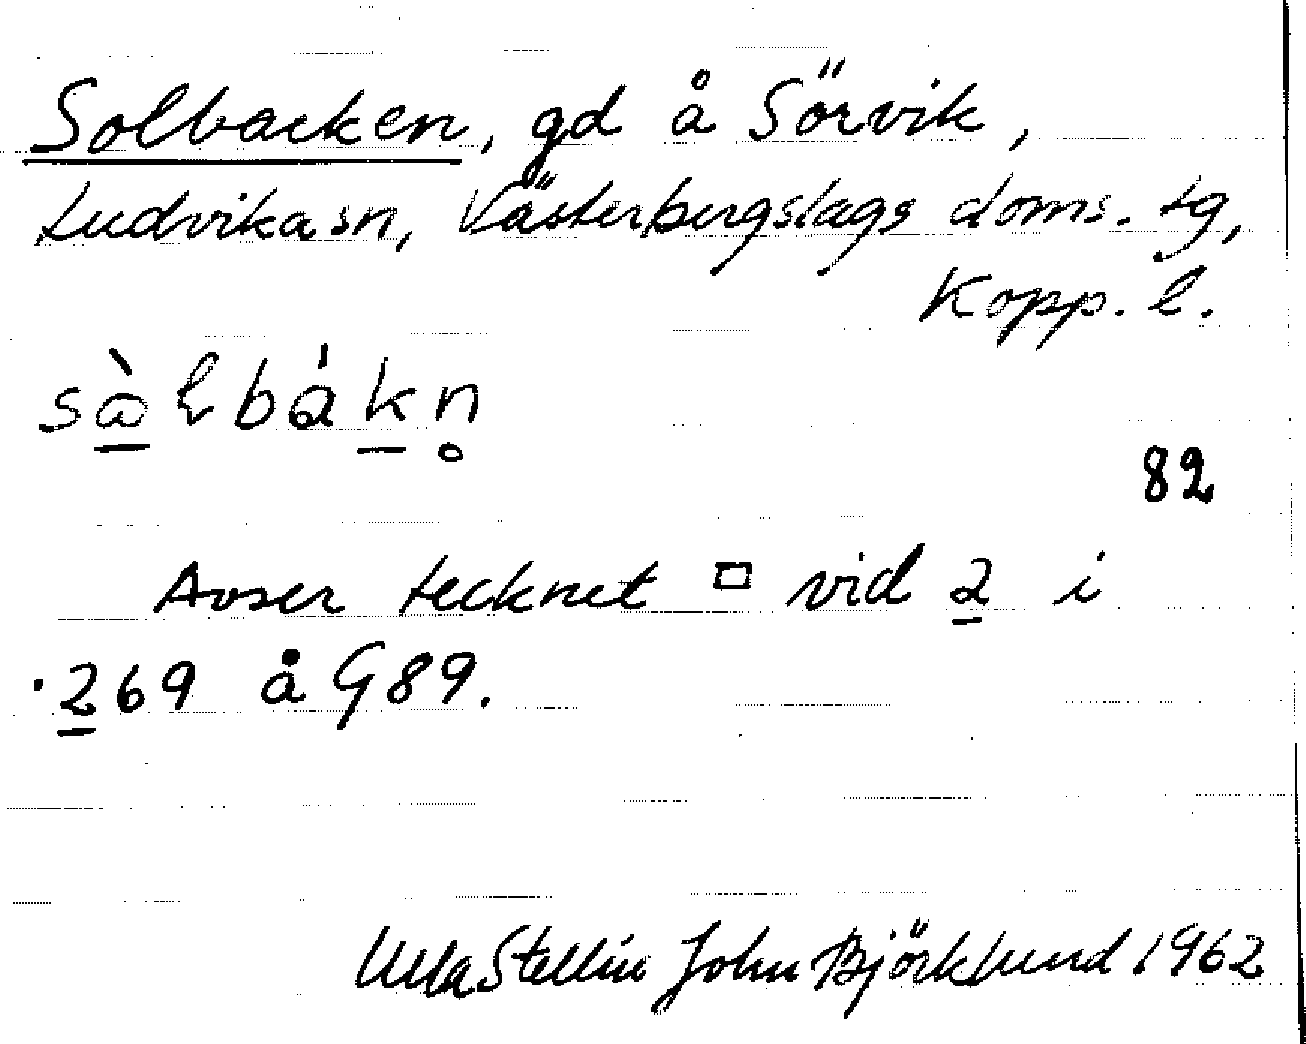 Solbacken, gd å Sörvik,
Ludvika sn, Västerbergslags doms. tg,
Kopp. l.
sàlbákn̥
82
Avser tecknet □ vid 2 i
·269 å G89.
Ulla Stellin John Björklund 1962